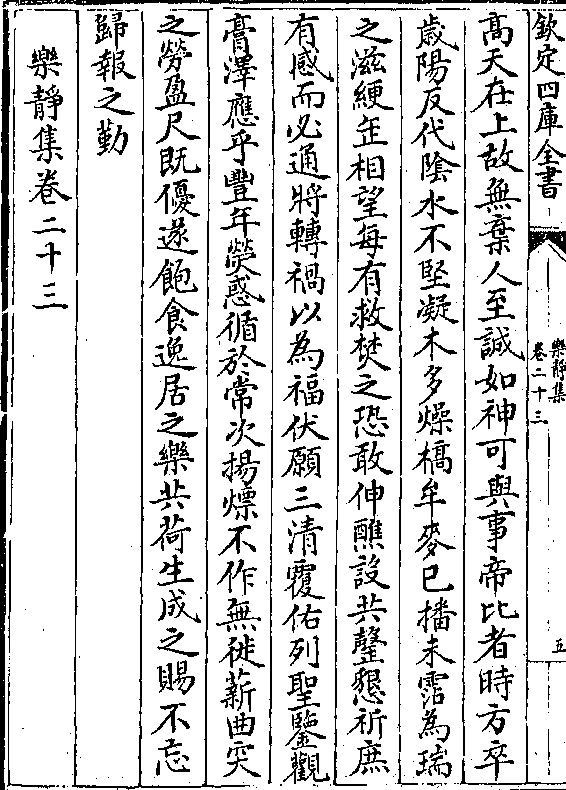 欽定四庫全書
樂靜集
卷二十三
五
高天在上故無棄人至誠如神可與事帝比者時方卒
歲陽反代陰水不堅凝木多燥槁牟麥已播未霑為瑞
之滋綆缶相望每有救焚之恐敢伸醮設共罄懇祈庶
有感而必通將轉禍以為福伏願三清覆佑列聖鑒觀
膏澤應乎豐年熒惑循於常次揚熛不作無徙薪曲突
之勞盈尺既優遂飽食逸居之樂共荷生成之賜不忘
歸報之勤
樂靜集卷二十三